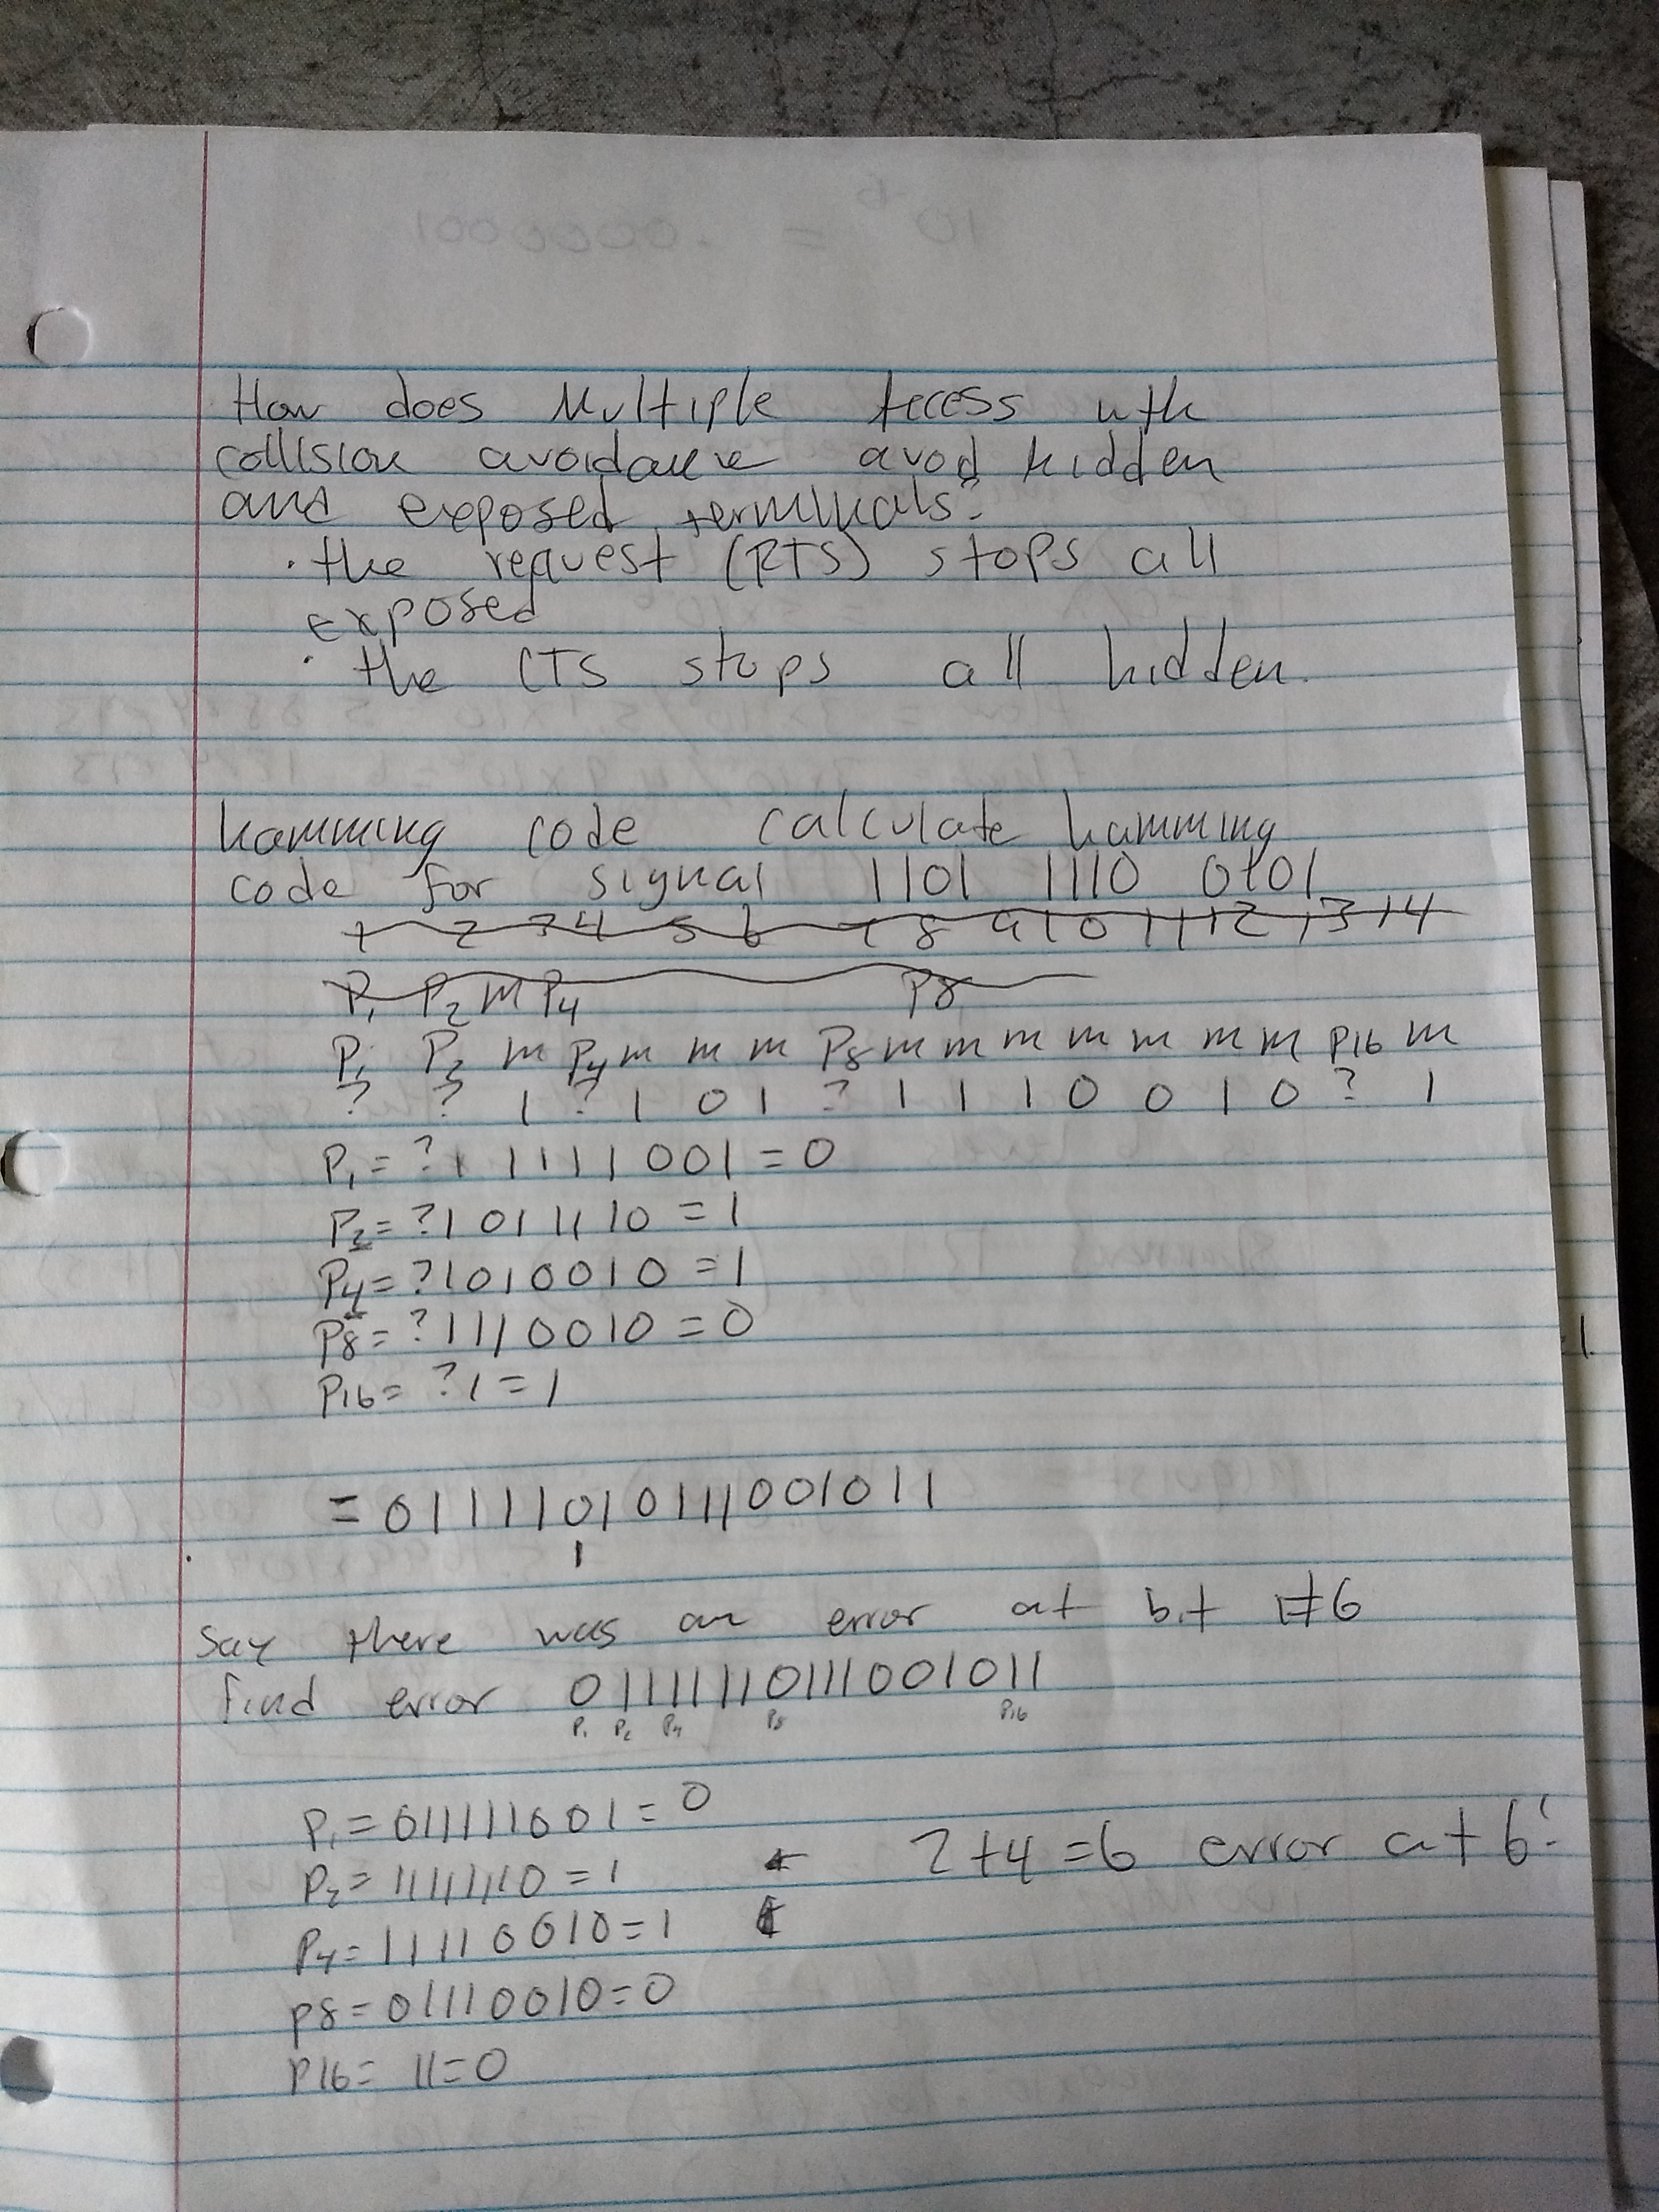 How does Multiple Access with
collision avoidance avoid hidden
and exposed terminals?
· the request (RTS) stops all
exposed
· the CTS stops all hidden.
hamming code calculate hamming
code for signal 1101 1110 0101
1 2 3 4 5 6 7 8 9 10 11 12 13 14
P1 P2 m P4 P8
P1 P2 m P4 m m m P8 m m m m m m m P16 m
? ? 1 ? 1 0 1 ? 1 1 1 0 0 1 0 ? 1
P1 = ? 1 1 1 1 1 0 0 1 = 0
P2 = ? 1 0 1 1 1 1 0 = 1
P4 = ? 1 0 1 0 0 1 0 = 1
P8 = ? 1 1 1 0 0 1 0 = 0
P16 = ? 1 = 1
= 01111010111001011
1
Say there was an error at bit #6
find error 01111110111001011
P1 P2 P4 P8 P16
P1 = 011111001 = 0
P2 = 11111110 = 1 ← 2+4=6 error at 6!
P4 = 11110010 = 1 ←
P8 = 01110010 = 0
P16 = 11 = 0